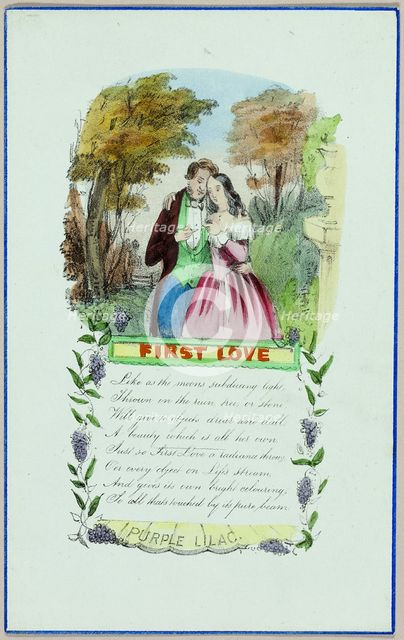 FIRST LOVE
Like as the moons subduing light,
Thrown on the ruin tree or stone
Will give to objects drear and dead
A beauty which is all her own
Just so First Love a radiance throws
O'er every object on Life's stream,
And gives its own bright colouring,
To all that's touched by its pure beam.
PURPLE LILAC.
Heritage
Heritage
Heritage
Heritage